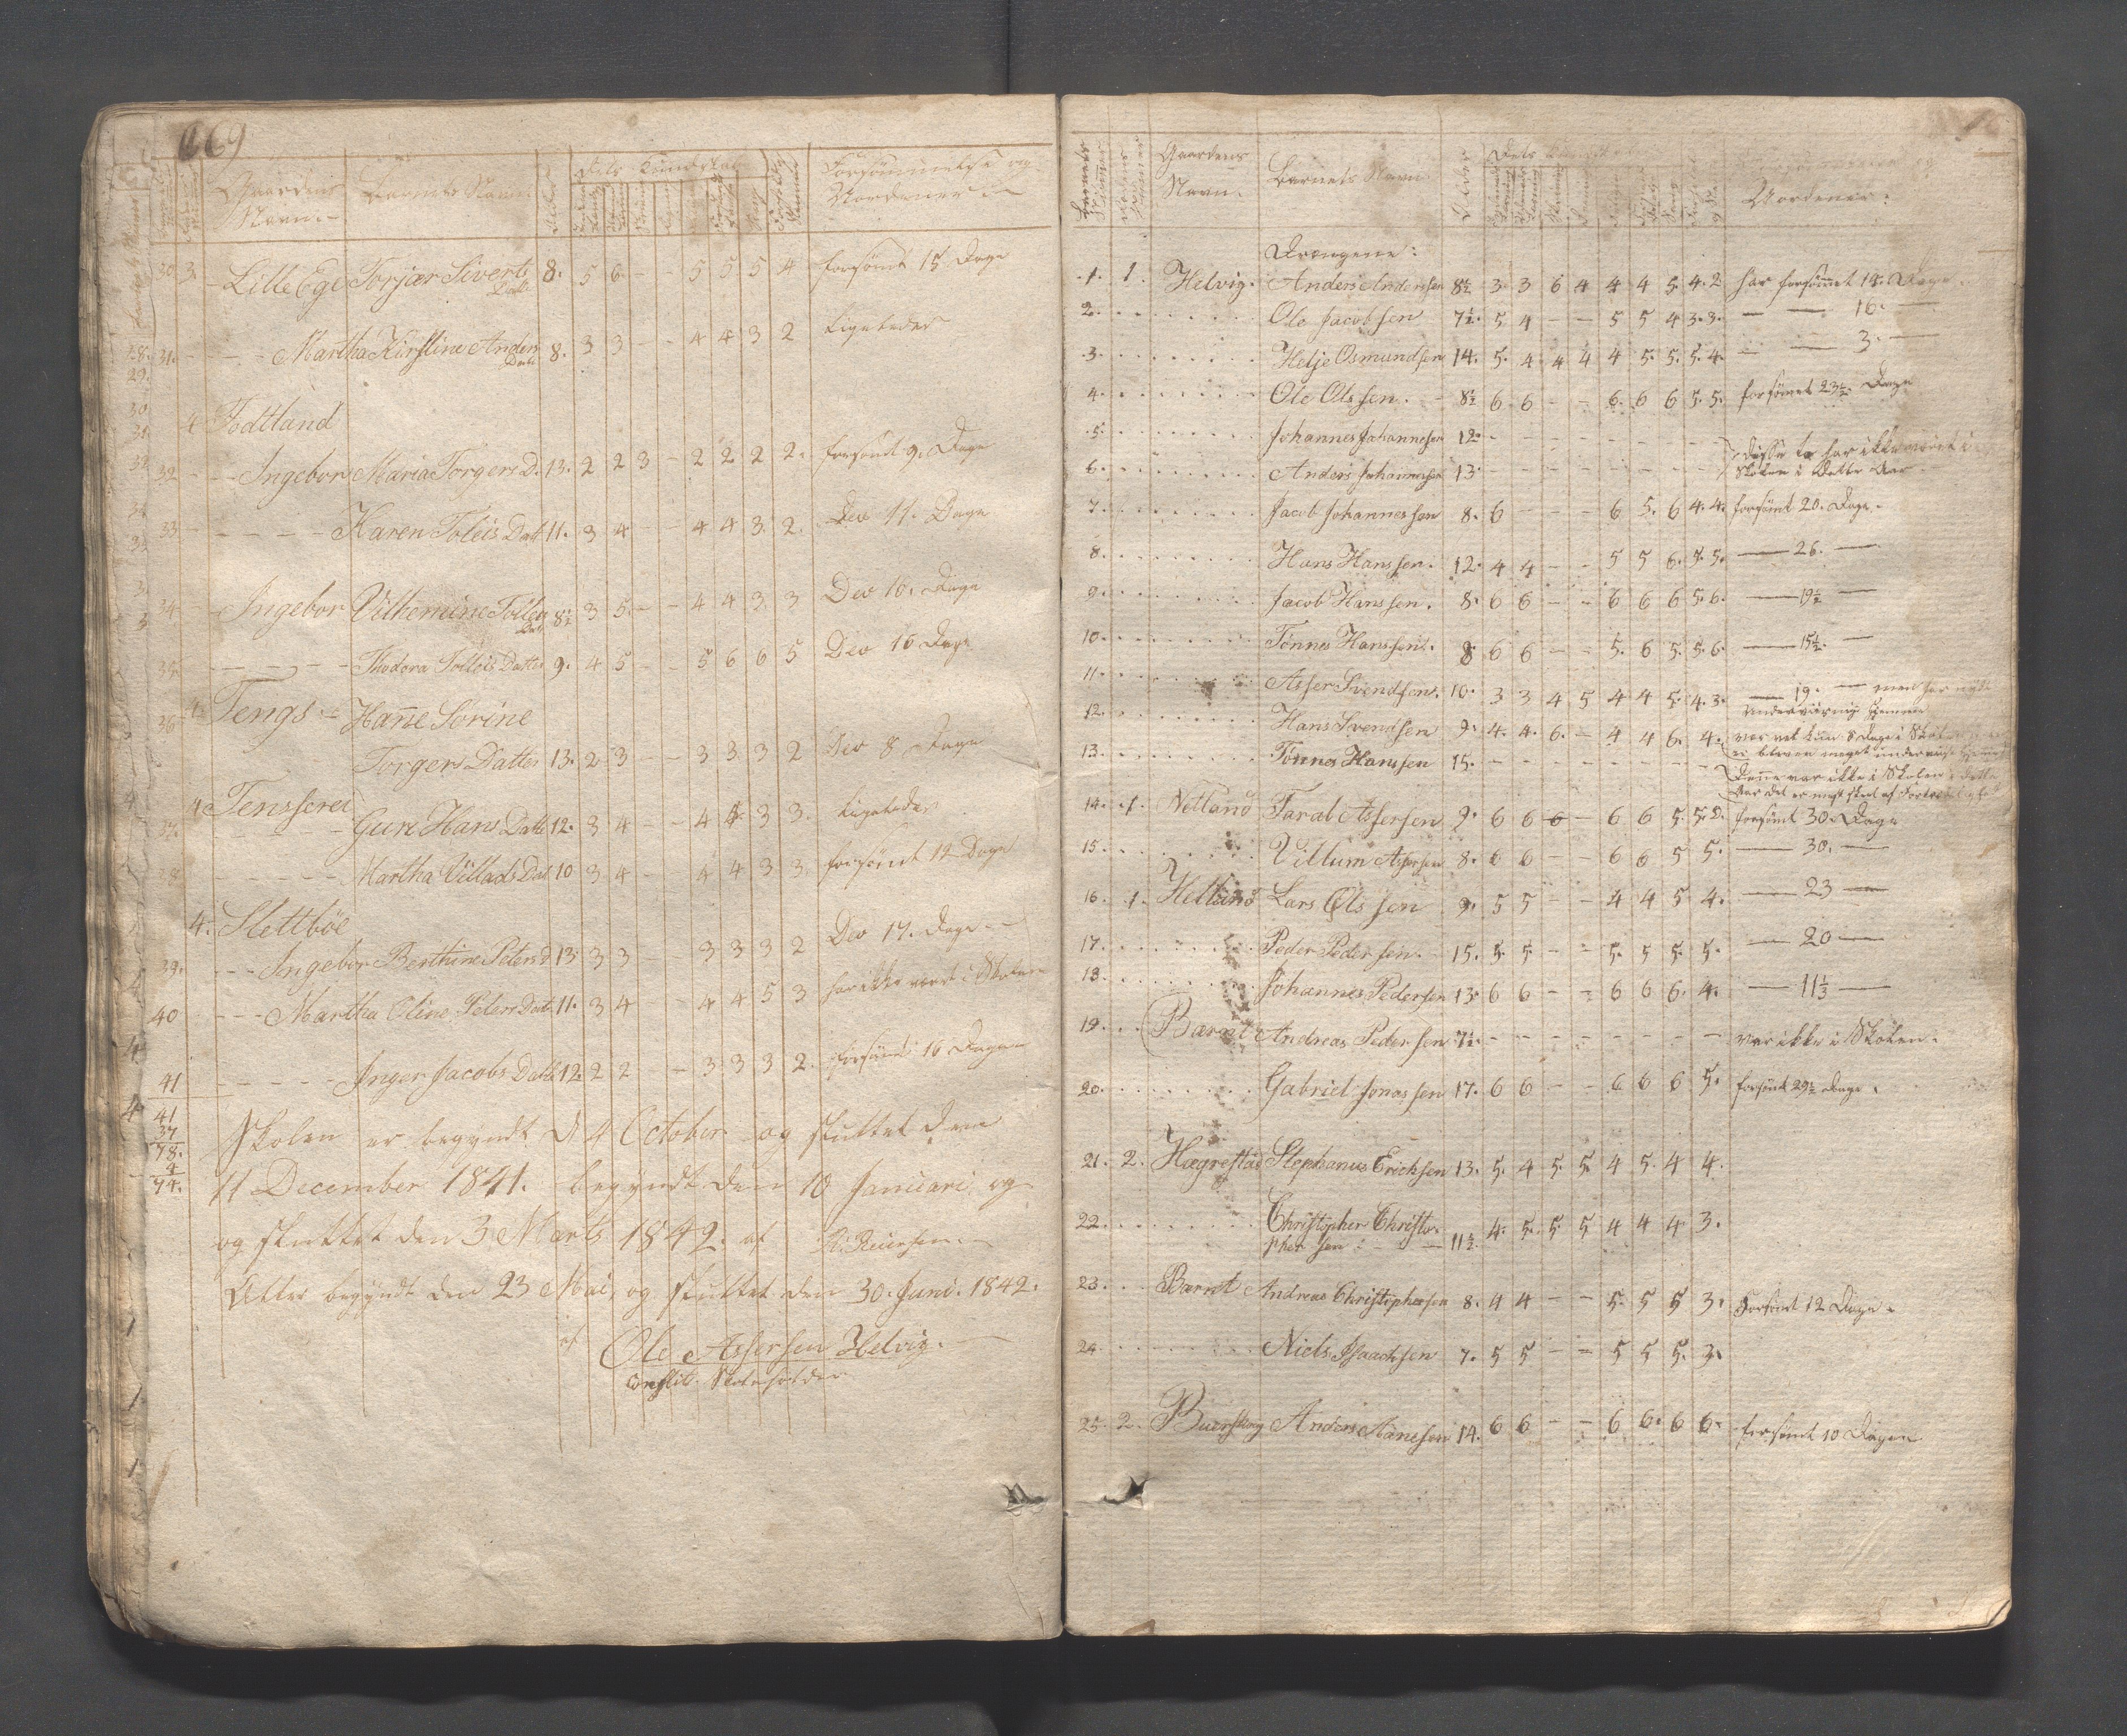 69
Gaardens Navn.
Barnets Navn
Alder
Dets Kundskab
Forsømmelse og Uordener
30 3. Lille Ege Torjær Siverts Datt 8. 5 6 - - 5 5 5 4 forsømt 15 Dage
31. - - Martha Kirstine Anders Datt 8. 3 3 - - 4 4 3 2 Ligeledes
4 Todtland
32 - - Ingebor Maria Torgers D. 13. 2 2 3 - 2 2 2 2. forsømt 9. Dage
33 - - - - Karen Toleis Datt 11. 3 4 - - 4 4 3. 2. Dev 11. Dage
34 - Ingebor Vilhemine Tolleis Dat 8½ 3 5. - - 4 4 3 3 Dev 10. Dage
35. - - - - Thodora Tolleis Datter 9. 4 5 - - 5 6 6 5 Dev 16 Dage
36 4 Tengs - Hanne Sorine
Torgers Datter 13. 2 3 - - 3 3 3 2 Dev 8 Dage
4 Tenssereé
37. - - - - Guri Hans Datt 12. 3 4 - - 4 4 3 3. Ligeledes
38 - - - - Martha Villads Dat 10 3 4 - - 4 4 3 3. forsømt 12 Dage
4. Slettböe
39. - - - Ingebor Berthine Peters D 13 3 3 - - 3 3 3 2 Dev 17. Dage -
40 - - - Martha Oline Peters Dat 11. 3 4 - - 4 4 5 3 har ikke været i Skolen
41 - - - - Inger Jacobs Datt 12 2 2 - 3 3 3 2. forsømt 16 Dage
41
37
78.
4
74.
Skolen er begyndt d 4 October og sluttet den
11 December 1841. begyndt den 10 Januari og
og sluttet den 3 Marts 1842. af R. Reiersen.
Atter begyndt den 23 Mai, og sluttet den 30. Juni. 1842.
af Ole Assersen Helvig.
constit. Skoleholder
Barnets Nummer
Gaardens Navn.
Barnets Navn
Alder
Dets
Uordener.
Drængene:
1. 1. Helvig. Anders Andersen 8½ 3 3 6 4 4 4 5 4. 2 har forsømt 14. Dage.
2. Ole Jacobsen 7½. 5 4 - - 5 5 4 3. 3. — — 16. —
3. Helje Osmundsen 14. 5. 4 4 4 4 5. 5. 5. 4. — — 3. —
4. Ole Olssen. 8½ 6 6 - - 6. 6 6 5. 5. forsømt 23½. Dage
5. Johannes Johannesen 12 - - - - - - - - disse to har ikke været i
6. Anders Johannessen 13 - - - - - - - - Skolen i dette Aar
7. Jacob Johannessen 8. 6 - - - 6 5. 6 4. 4. forsømt 20. Dage.
8. Hans Hanssen. 12. 4 4 - - 5 5 6. 5. 5. — 26. —
9. Jacob Hanssen. 8. 6 6 - - 6 6 6 5. 6. — 19½ —
10. Tönnes Hanssen. 8 6 6 - - 5. 6 5. 5. 6. — 15½. —
11. Asser Svendsen. 10. 3 3 4 5 4 4 5. 4. 3. — 19. — men har nydt
Underviisning hjemme
12. Hans Svendsen 9. 4. 4. 6. - 4 4 6. 4. var vel kun 8 Dage i Skolen
er bleven meget underviist hjemme
13. Tönnes Hanssen 15. - - - - - - - - Denne var ikke i Skolen i dette
Aar det er mest skeet af
14. 1. Netland Taral Assersen 9. 6 6 6 - 6 6 5. 5. forsømt 30. Dage
15. Villum Assersen 8. 6 6 - - 6 6 5 5. — 30. —
16. 1. Helland Lars Olssen 9. 5 5 - - 4 4 5 4. — 23 —
17. Peder Pedersen. 15. 5. 5 - - 5. 5 5. 5. — 20 —
18. Johannes Pedersen 13. 6 6 - - 6 6 6. 4. — 11⅓ —
19. Barnet Andreas Pedersen 7½. - - - - - - - - var ikke i Skolen.
20. Gabriel Jonassen 17. 6 6 - - 6 6 6 5. forsømt 29½ Dage.
21. 2. Hægrestad Stephanus Erichsen 13. 5. 4 5. 5. 4 5. 4 4.
22. Christopher Christo-
phersen - - 11½ 4. 5. 5. 5 4 4 4 3.
23. Barnet Andreas Christophersen 8. 4 4 - - 5. 5 5 3. Forsømt 12 Dage.
24. Niels Isaachsen 7. 5 5 - - 5 5 5. 3.
25. 2. Buerskoug Anders Hanssen 14. 6 6 - - 6 6. 6 6. forsømt 10 Dage